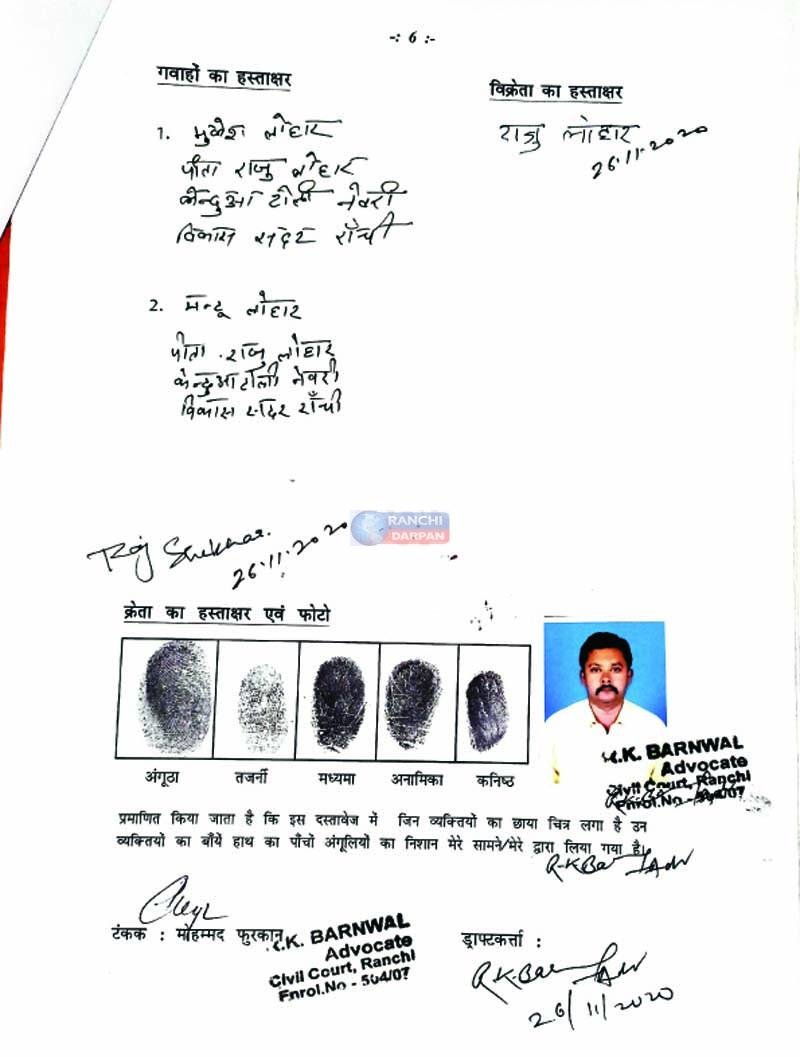 -: 6 :-
गवाहों का हस्ताक्षर
विक्रेता का हस्ताक्षर
1. मुकेश लोहार
पीता राजु लोहार
केन्दुआ टोली नेवरी
विकास सदर राँची
राजु लोहार
26.11.2020
2. मन्टू लोहार
पीता . राजु लोहार
केन्दुआटोली नेवरी
विकास सदर राँची
RANCHI
DARPAN
Raj Shekhar.
26.11.2020
क्रेता का हस्ताक्षर एवं फोटो
अंगूठा तजर्नी मध्यमा अनामिका कनिष्ठ
.K. BARNWAL
Advocate
Civil Court, Ranchi
Enrol.No - 504/07
प्रमाणित किया जाता है कि इस दस्तावेज में जिन व्यक्तियों का छाया चित्र लगा है उन
व्यक्तियों का बाँयें हाथ का पाँचों अंगूलियों का निशान मेरे सामने/मेरे द्वारा लिया गया है।
टंकक : मोहम्मद फुरकान
.K. BARNWAL
Advocate
Civil Court, Ranchi
Enrol.No - 504/07
ड्राफ्टकर्त्ता :
26/11/2020